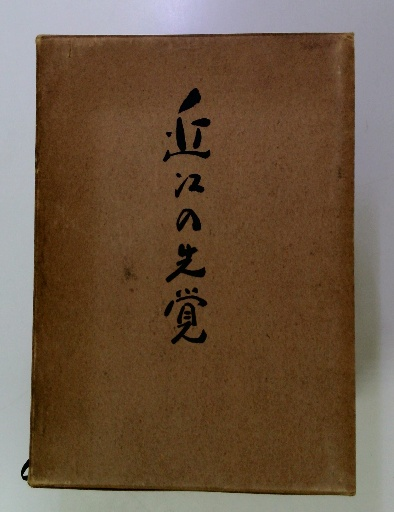 近江の先覚